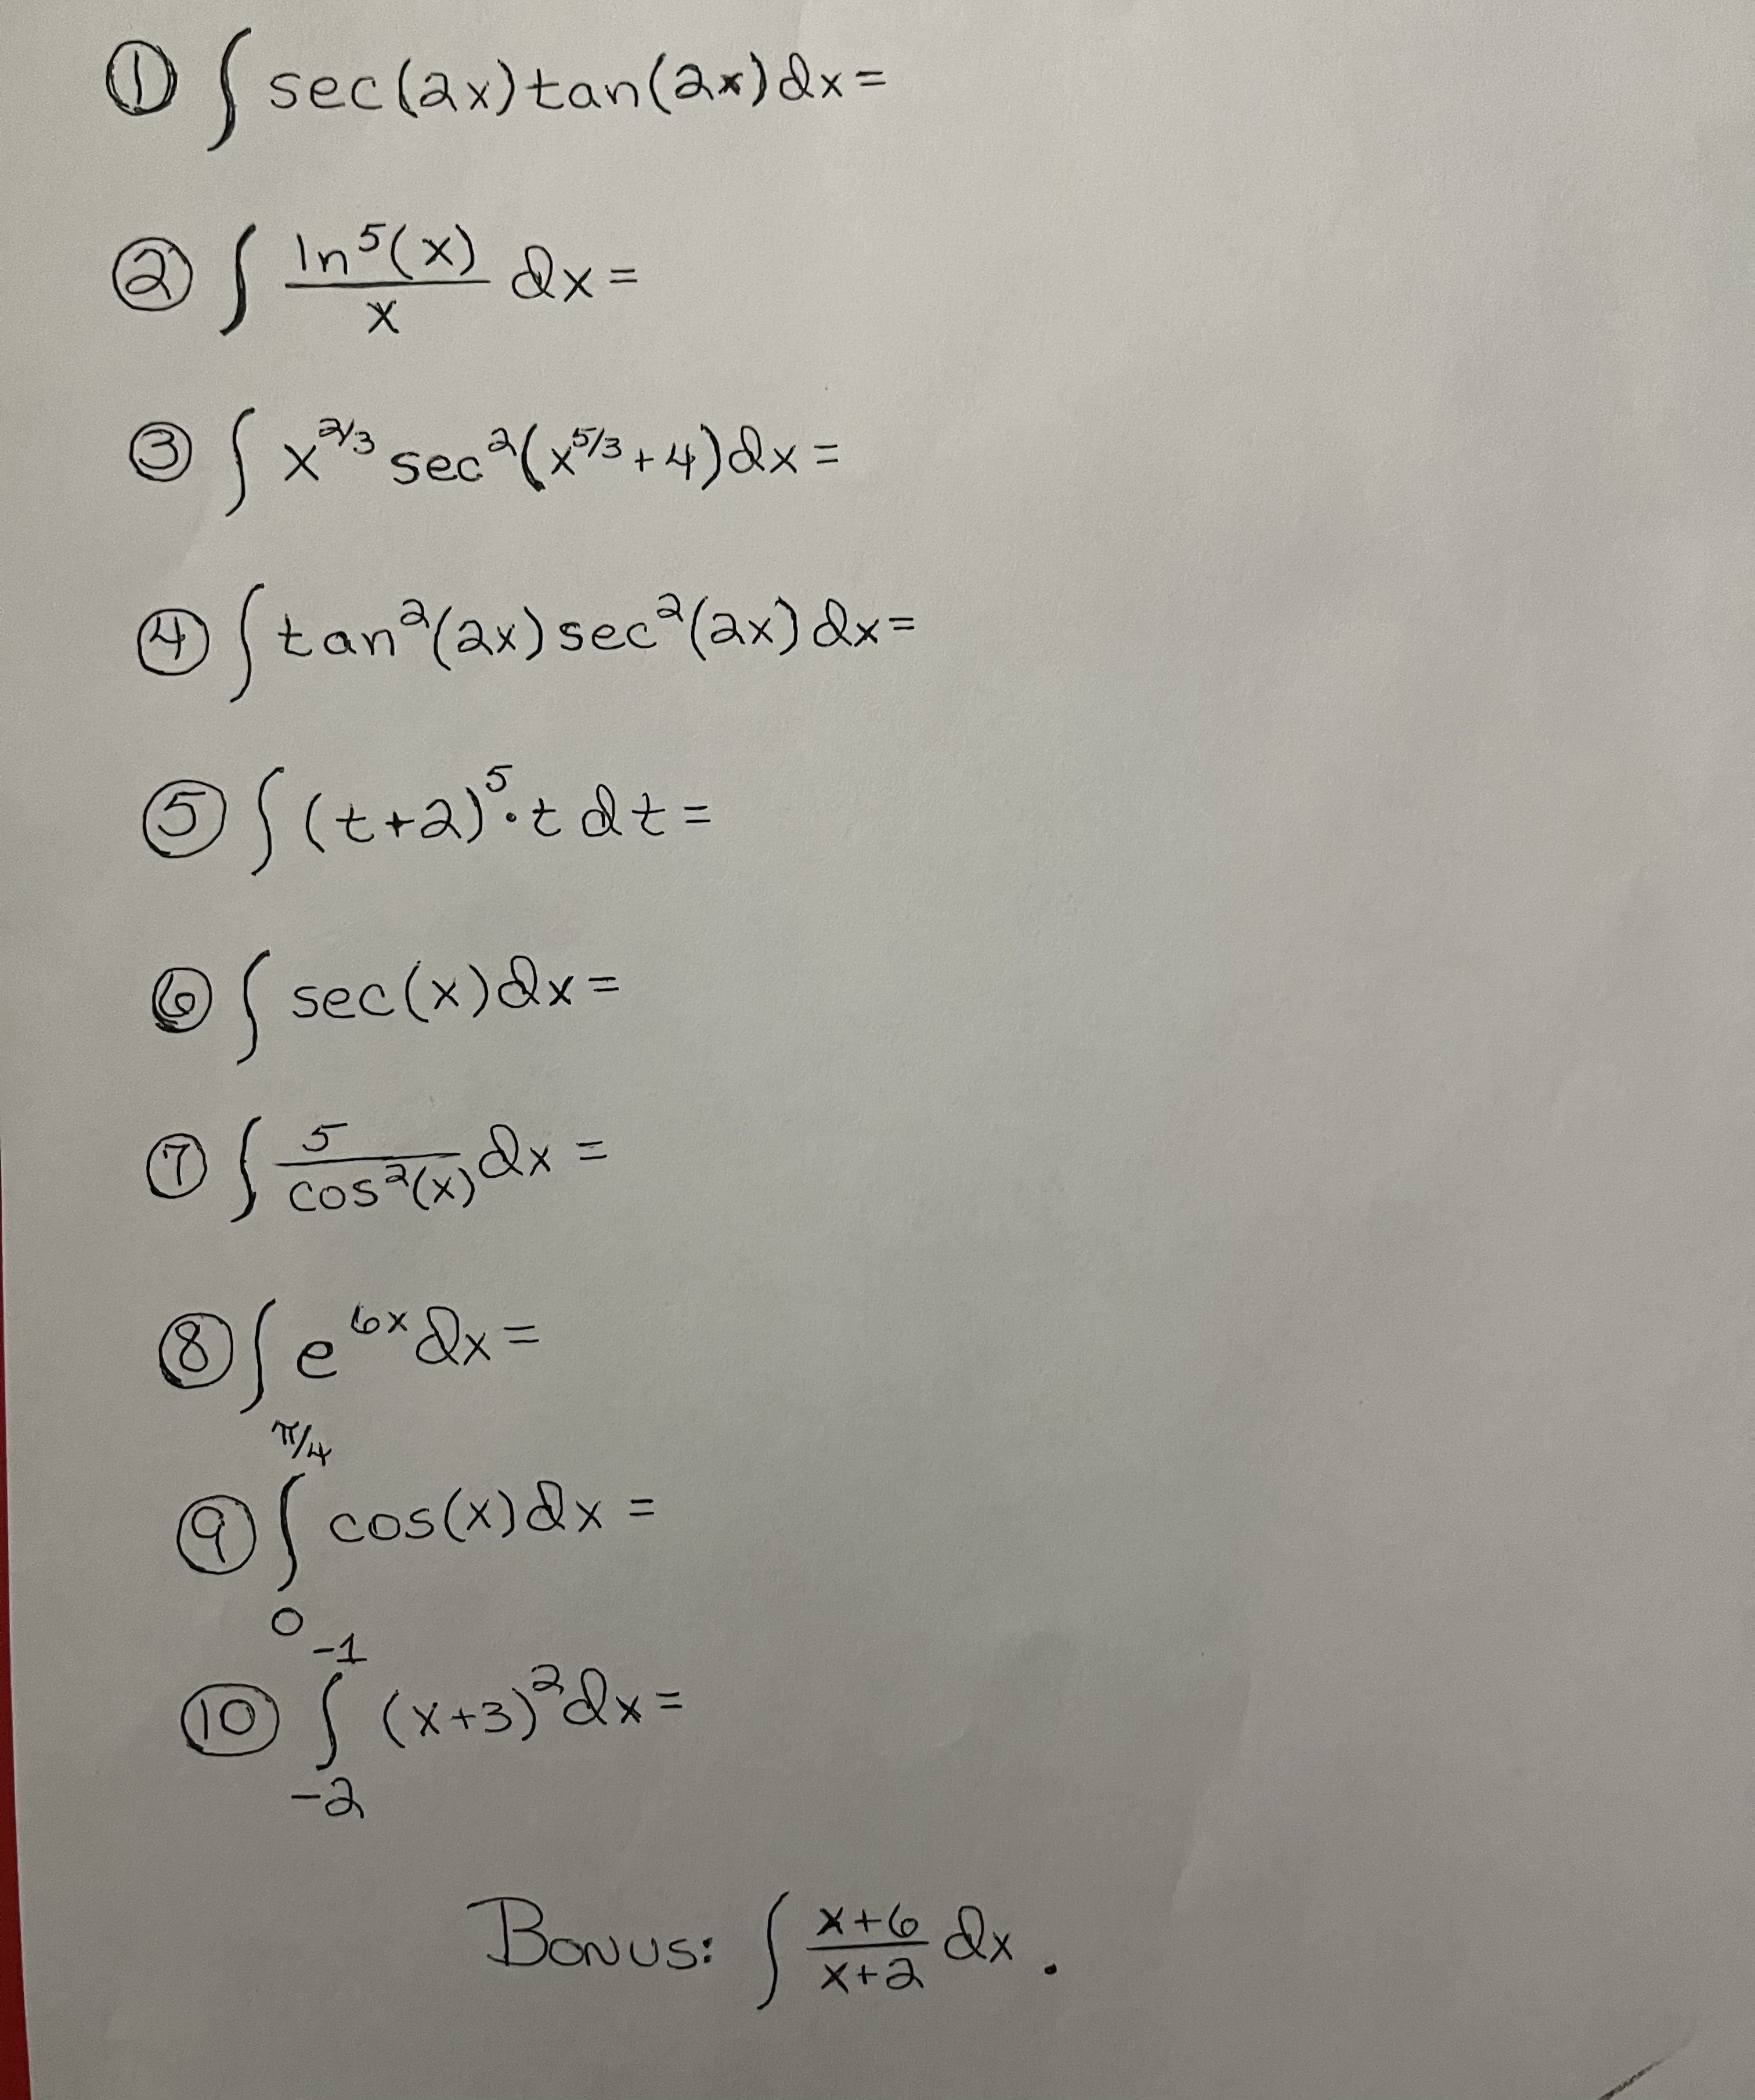 ① ∫ sec(2x)tan(2x)dx=
② ∫ ln⁵(x)/x dx=
③ ∫ x^(2/3) sec²(x^(5/3)+4)dx=
④ ∫ tan²(2x)sec²(2x)dx=
⑤ ∫ (t+2)⁵·t dt=
⑥ ∫ sec(x)dx=
⑦ ∫ 5/cos²(x) dx=
⑧ ∫ e^(6x) dx=
⑨ ∫_0^(π/4) cos(x)dx=
⑩ ∫_(-2)^(-1) (x+3)²dx=
Bonus: ∫ (x+6)/(x+2) dx.